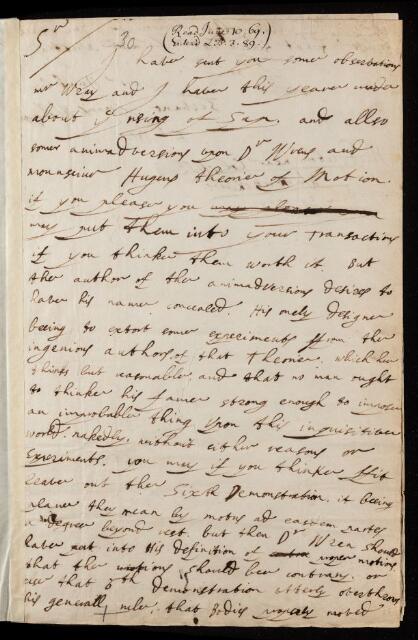 Read June 10. 69.
Enterd L.B. 3. 89.
Sr 30. I have sent you some observations
mr Wray and I have this yeare made
about ye rising of Sap. and allso
some animadversions upon Dr Wrens and
mounseiur Hugens theorie of Motion.
if you please you
may put them into your Transactions
if you thinke them worth it. But
the author of the animadversions desires to
have his name concealed. His onely designe
beeing to extort some experiments from the
ingenious authors of that Theorie, which hee
thinks but reasonable, and that no man ought
to thinke his fame strong enough to impose
an improbable thing upon this inquisitive
world. nakedly. without either reasons or
Experiments. you may if you thinke fit
leave out the Sixth Demonstration. it beeing
plaine they mean by motus ad easdem partes
a degree beyond rest. but then Dr Wren should
have put into His definition of motions
that the motions should bee contrary. or
else that 6th demonstration utterly overthrows
his generall rule. that Bodis moved